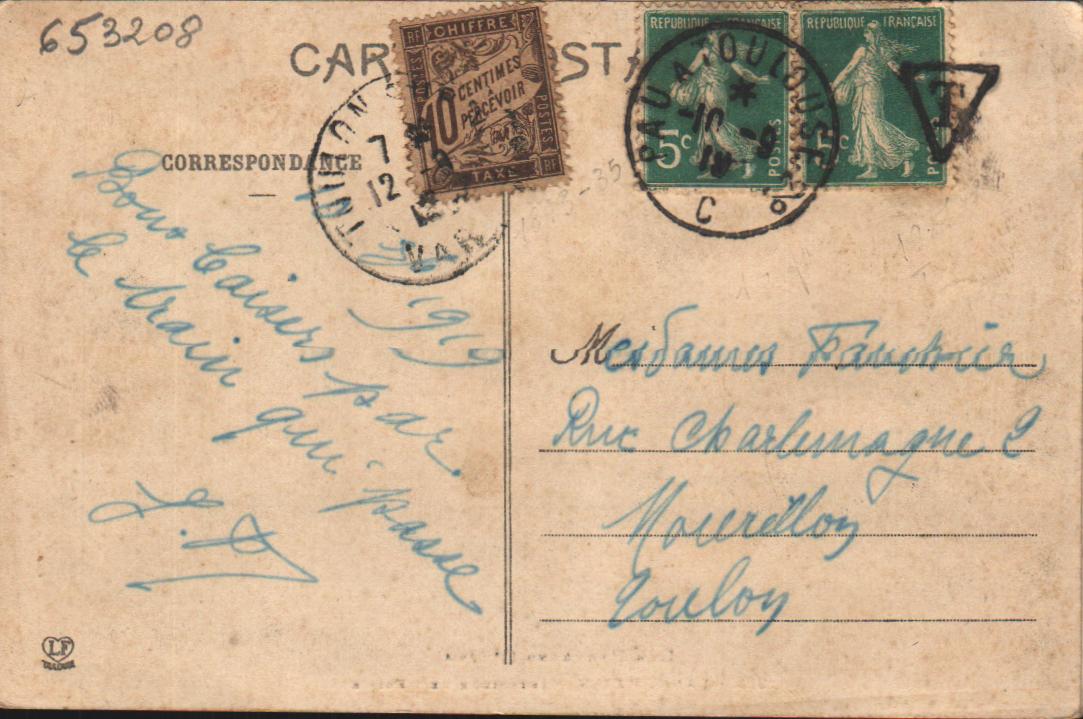 653208
CARTE POSTALE
CHIFFRE
10 CENTIMES
À
PERCEVOIR
POSTES
POSTES
RF
RF
TAXE
REPUBLIQUE FRANÇAISE
5c
POSTES
REPUBLIQUE FRANÇAISE
5c
POSTES
PAU A TOULOUSE
10 -9
19
C
T
TOULON
7
12 -9
VAR
CORRESPONDANCE
1919
Bons baisers par
le train qui passe
Mesdames
Rue Charlemagne 2
Mourillon
Toulon
LF
TOULOUSE